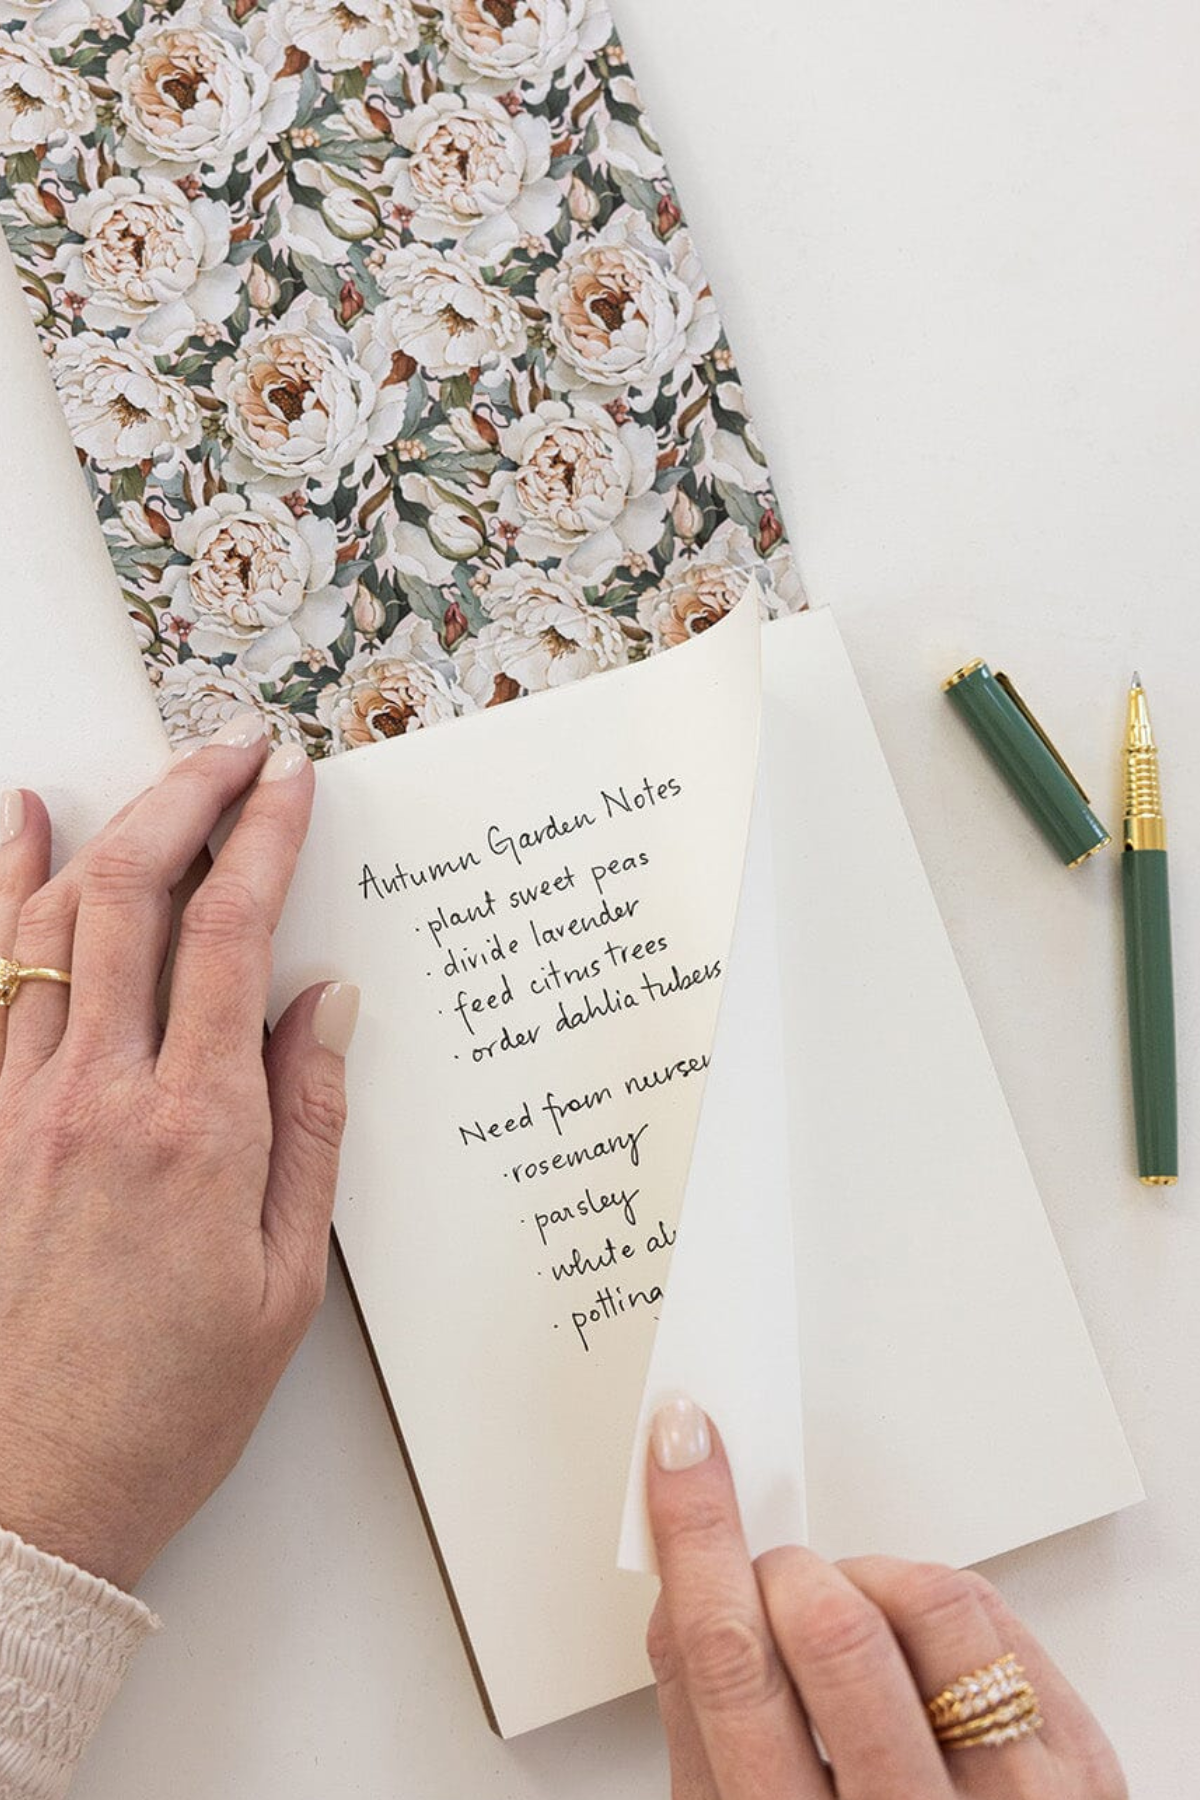 Autumn Garden Notes
· plant sweet peas
· divide lavender
· feed citrus trees
· order dahlia tubers
Need from
· rosemary
· parsley
· white
·